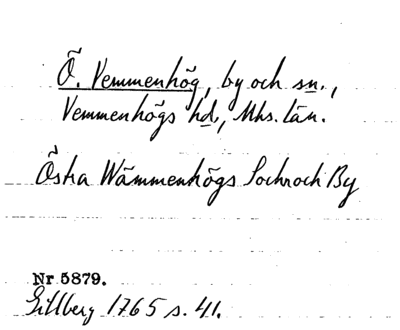 Ö. Vemmenhög, by och sn.,
Vemmenhögs hd., Mhs. län.
Östra Wämmenhögs Sochn och By
Nr 5879.
Gillberg 1765 s. 41.